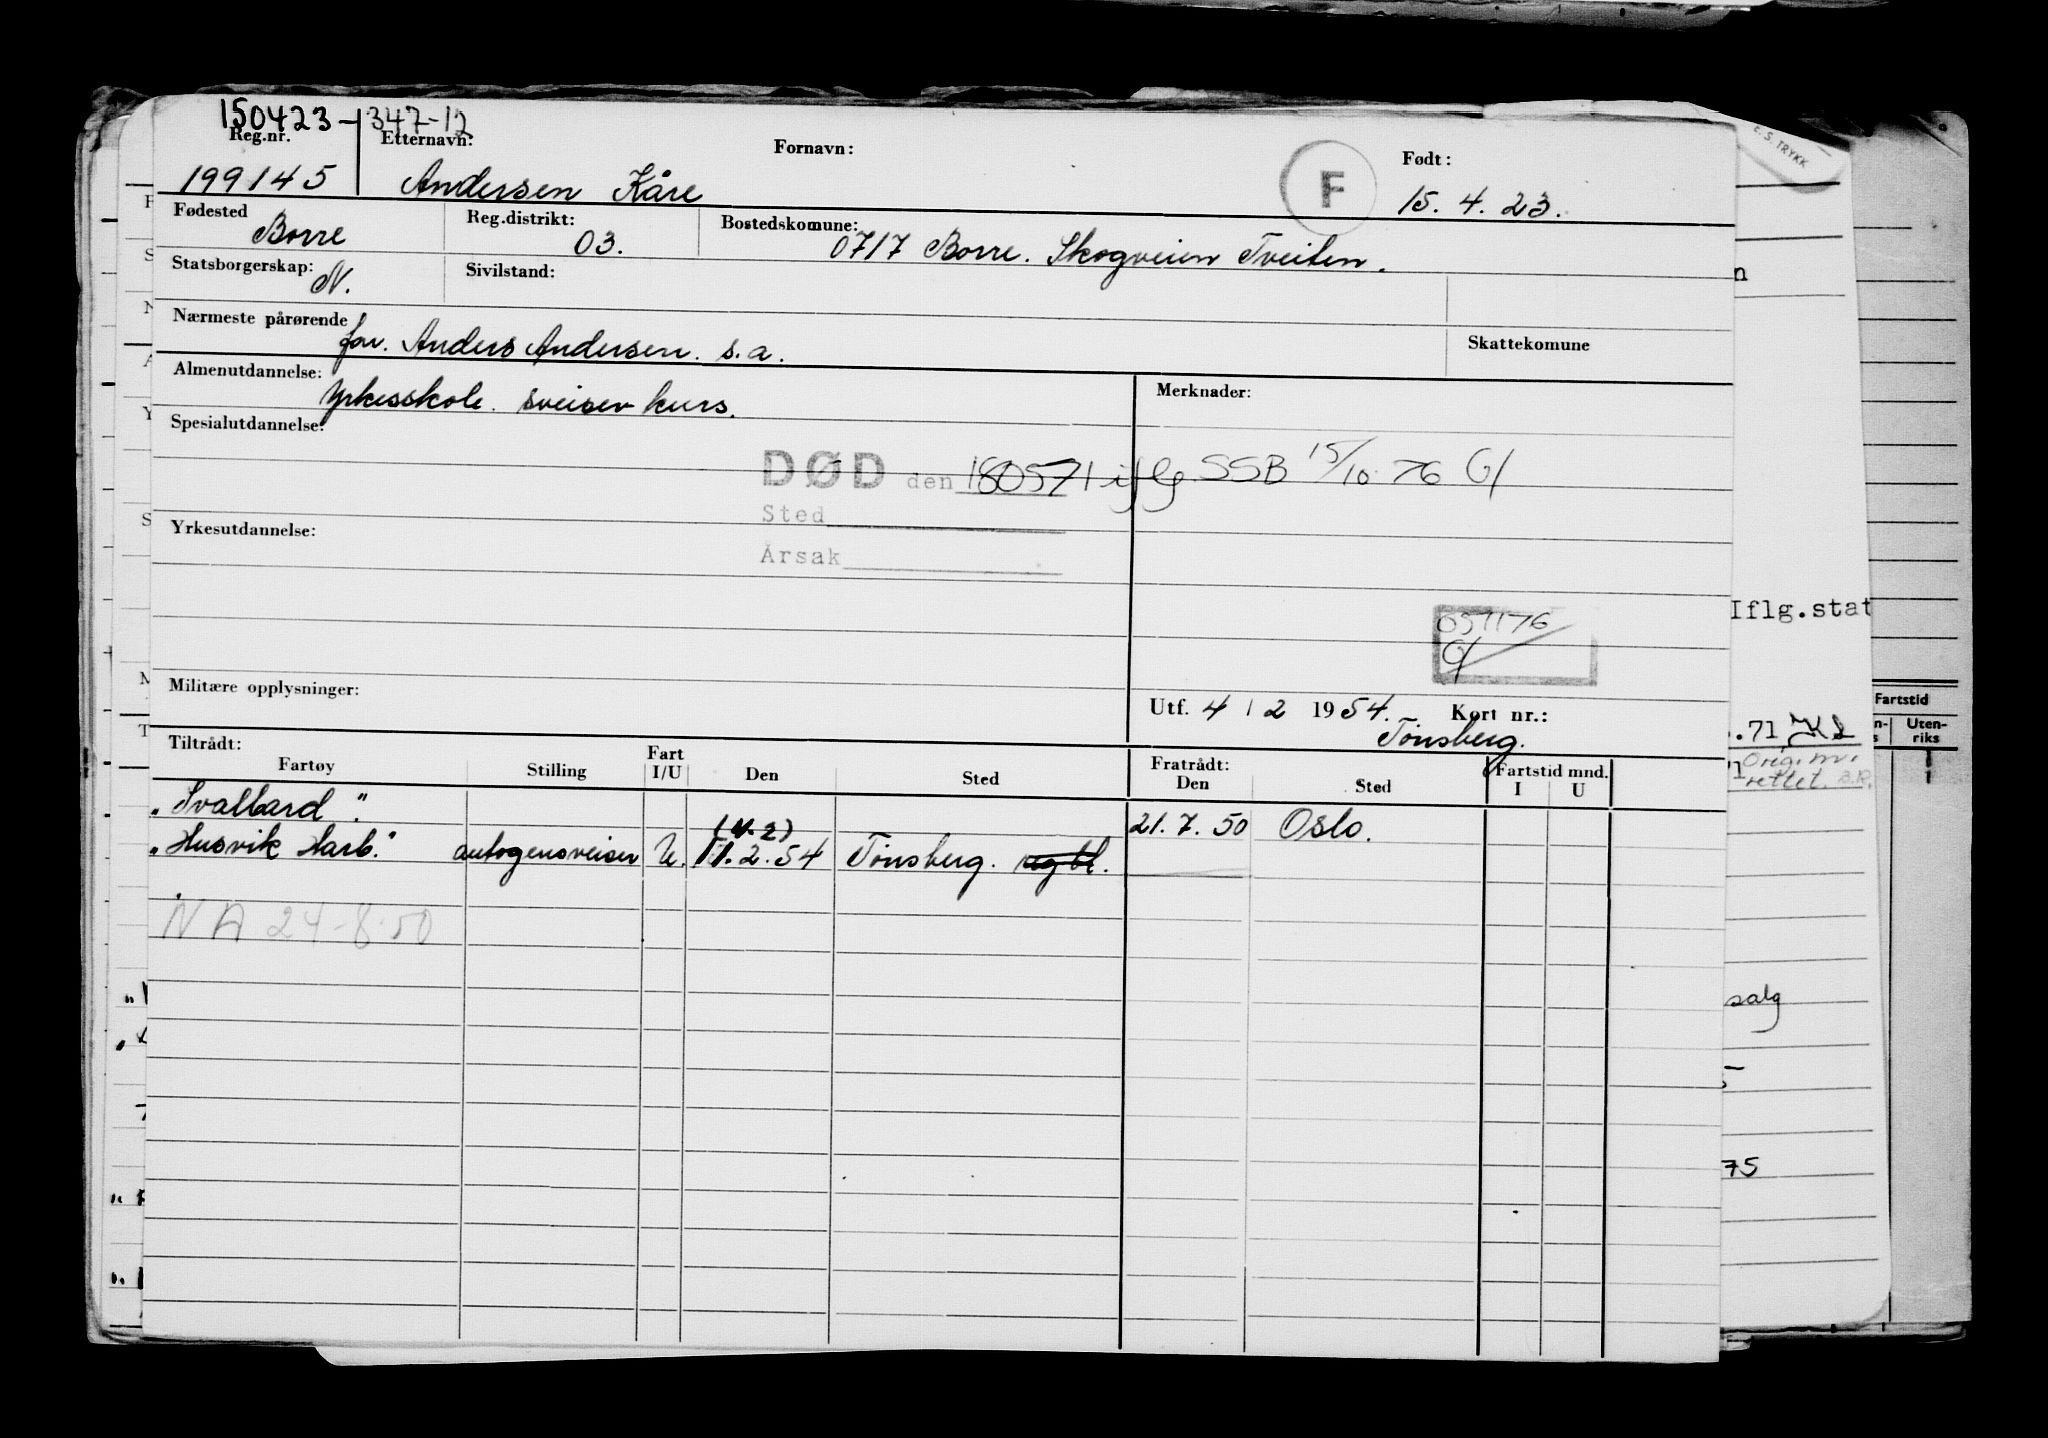 150423-347-12
Reg.nr. Etternavn: Fornavn: F Født:
199145 Andersen Kåre 15. 4. 23.
Fødested Reg.distrikt: Bostedskomune:
Borre 03. 0717 Borre. Skogveien Tveiten.
Statsborgerskap: Sivilstand:
N.
Nærmeste pårørende Skattekomune
far. Anders Andersen. s.a.
Almenutdannelse: Merknader:
Yrkesskole. sveiser kurs.
Spesialutdannelse:
DØD den 180571 iflg SSB 15/10 76 G/
Sted
Yrkesutdannelse:
Årsak
051176
G/
Militære opplysninger:
Utf. 4 / 2 1954. Kort nr.:
Tønsberg.
Tiltrådt: Fratrådt:
Fartøy Stilling Fart I/U Den Sted Den Sted Fartstid mnd. I U
"Svalbard". 21. 7. 50 Oslo.
(4.2)
"Husvik Harb." autogensveiser U. 11.2.54 Tønsberg.
NA 24-8-50
E.S. TRYKK
n
Iflg.stat
Fartstid
Uten-
riks
.71
Orig. m.
rettet. B.R.
salg
75